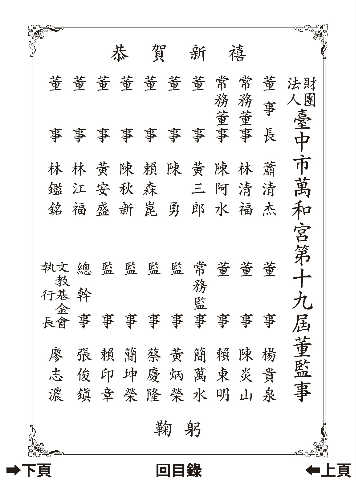 恭賀新禧
財團法人臺中市萬和宮第十九屆董監事
董事長 蕭清杰
常務董事 林清福
常務董事 陳阿水
董事 黃三郎
董事 陳勇
董事 賴森崑
董事 陳秋新
董事 黃安盛
董事 林江福
董事 林鑑銘
董事 楊貴泉
董事 陳炎山
董事 賴東明
常務監事 簡萬水
監事 黃炳榮
監事 蔡慶隆
監事 簡坤榮
監事 賴印章
總幹事 張俊鎮
文教基金會執行長 廖志濃
鞠躬
➡下頁
回目錄
⬅上頁